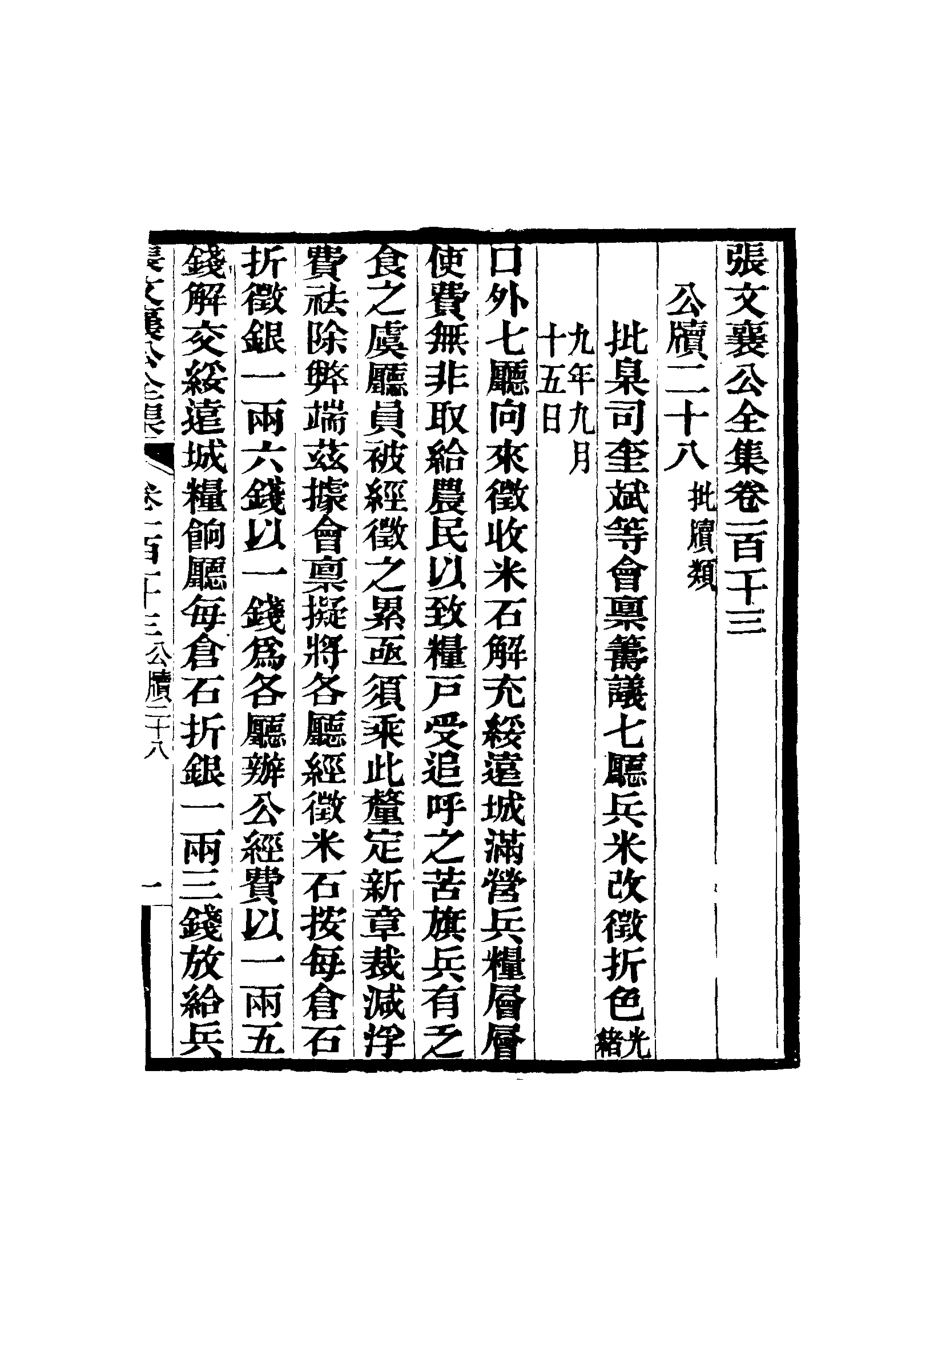 張文襄公全集卷一百十三
公牘二十八 批牘類
批臬司奎斌等會稟籌議七廳兵米改徵折色 光緒
九年九月
十五日
口外七廳向來徵收米石解充綏遠城滿營兵糧層層
使費無非取給農民以致糧戸受追呼之苦旗兵有乏
食之虞廳員被經徵之累亟須乘此釐定新章裁減浮
費祛除弊端茲據會稟擬將各廳經徵米石按每倉石
折徵銀一兩六錢以一錢爲各廳辦公經費以一兩五
錢解交綏遠城糧餉廳每倉石折銀一兩三錢放給兵
張文襄公全集 卷一百十三 公牘二十八 一